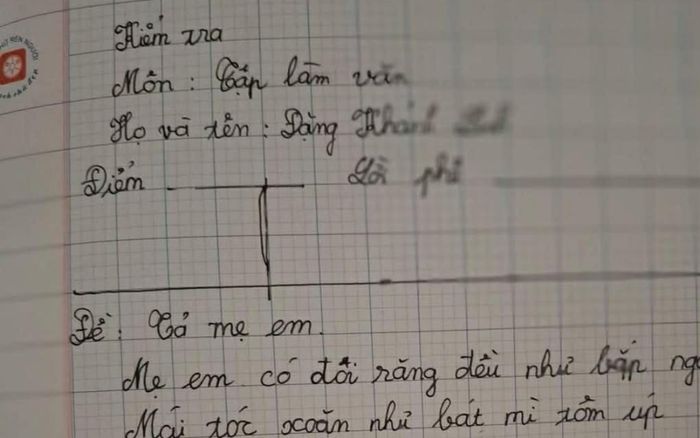 Kiểm tra
Môn: Tập làm văn
Họ và tên: Đặng Khánh
Điểm Lời phê
Đề: Tả mẹ em.
Mẹ em có đôi răng đều như bắp
Mái tóc xoăn như bát mì tôm úp